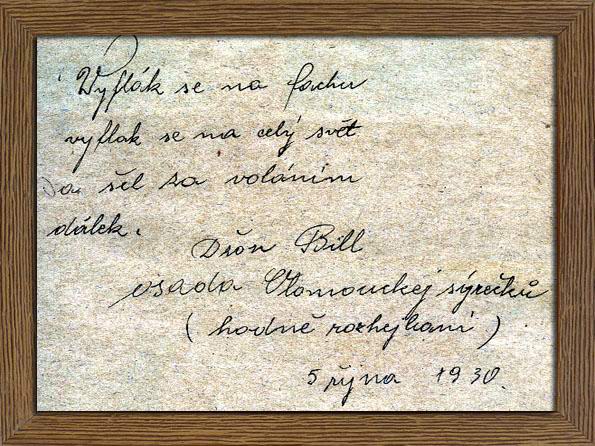 Vyflák se na fachu
vyflak se na celý svět
a šel za voláním
dálek.
Džon Bill
osada Olomouckej syrečků
(hodně rozhejbaní)
5 října 1930.